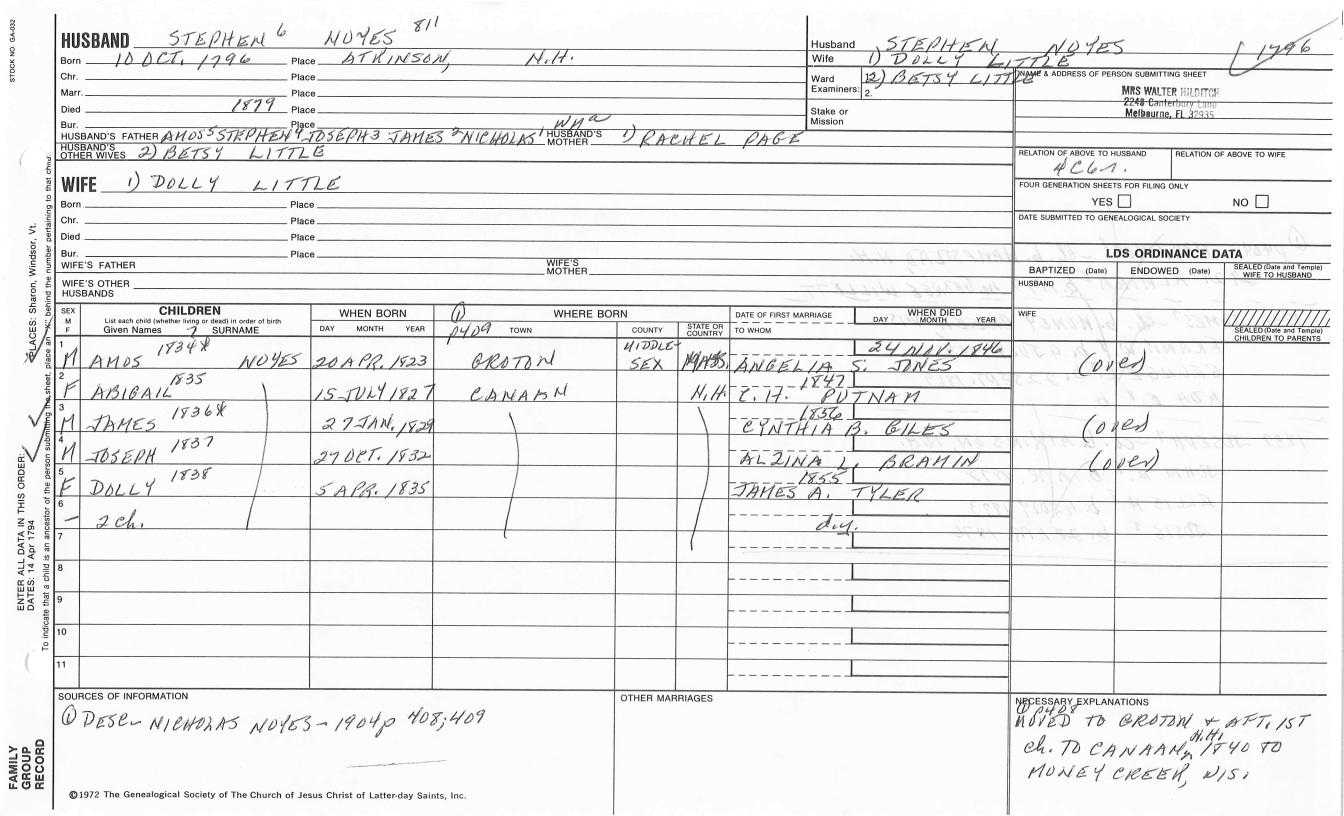 STOCK NO. GA-032
HUSBAND STEPHEN 6 NOYES 811
Born 10 OCT. 1796 Place ATKINSON, N.H.
Chr. Place
Marr. Place
Died 1879 Place
Bur. Place
HUSBAND'S FATHER AMOS 5 STEPHEN 4 JOSEPH 3 JAMES 2 NICHOLAS 1 WMa HUSBAND'S MOTHER 1) RACHEL PAGE
HUSBAND'S OTHER WIVES 2) BETSY LITTLE
WIFE 1) DOLLY LITTLE
Born Place
Chr. Place
Died Place
Bur. Place
WIFE'S FATHER WIFE'S MOTHER
WIFE'S OTHER HUSBANDS
Husband STEPHEN NOYES 1796
Wife 1) DOLLY LITTLE
Ward Examiners: 1. 2) BETSY LITTLE
2.
Stake or Mission
NAME & ADDRESS OF PERSON SUBMITTING SHEET
MRS WALTER HILDITCH
2248 Canterbury Lane
Melbourne, FL 32935
RELATION OF ABOVE TO HUSBAND RELATION OF ABOVE TO WIFE
4C6r.
FOUR GENERATION SHEETS FOR FILING ONLY
YES NO
DATE SUBMITTED TO GENEALOGICAL SOCIETY
LDS ORDINANCE DATA
BAPTIZED (Date) ENDOWED (Date) SEALED (Date and Temple) WIFE TO HUSBAND
HUSBAND
WIFE
SEALED (Date and Temple) CHILDREN TO PARENTS
SEX M F
CHILDREN
List each child (whether living or dead) in order of birth
Given Names 7 SURNAME
WHEN BORN
DAY MONTH YEAR
① P409
WHERE BORN
TOWN COUNTY STATE OR COUNTRY
DATE OF FIRST MARRIAGE
TO WHOM
WHEN DIED
DAY MONTH YEAR
1 M AMOS 1834* NOYES 20 APR. 1823 GROTON MIDDLE-SEX MASS. 24 NOV. 1846 ANGELIA S. JONES (over)
2 F ABIGAIL 1835 15 JULY 1827 CANAAN N.H. 1847 C. H. PUTNAM
3 M JAMES 1836* 27 JAN. 1829 1856 CYNTHIA B. GILES (over)
4 M JOSEPH 1837 27 OCT. 1832 ALZINA L. BRAMIN (over)
5 F DOLLY 1838 5 APR. 1835 1855 JAMES A. TYLER
6 – 2 ch. d.y.
7
8
9
10
11
SOURCES OF INFORMATION
① DESC– NICHOLAS NOYES– 1904 p 408; 409
OTHER MARRIAGES
NECESSARY EXPLANATIONS
① p408
MOVED TO GROTON & AFT. 1ST
ch. TO CANAAN, N.H. 1840 TO
MONEY CREEK, WIS.
©1972 The Genealogical Society of The Church of Jesus Christ of Latter-day Saints, Inc.
FAMILY GROUP RECORD
ENTER ALL DATA IN THIS ORDER:
DATES: 14 Apr 1794
PLACES: Sharon, Windsor, Vt.
To indicate that a child is an ancestor of the person submitting the sheet, place an "X" behind the number pertaining to that child.